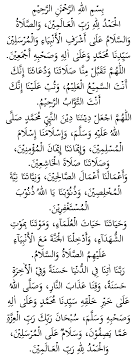 بِسْمِ اللهِ الرَّحْمٰنِ الرَّحِيْمِ
الْحَمْدُ لِلّٰهِ رَبِّ الْعَالَمِيْنَ، وَالصَّلَاةُ
وَالسَّلَامُ عَلَى أَشْرَفِ الْأَنْبِيَاءِ وَالْمُرْسَلِيْنَ
سَيِّدِنَا مُحَمَّدٍ وَعَلَى آلِهِ وَصَحْبِهِ أَجْمَعِيْنَ.
اللّٰهُمَّ تَقَبَّلْ مِنَّا صَلَاتَنَا وَدُعَاءَنَا إِنَّكَ
أَنْتَ السَّمِيْعُ الْعَلِيْمُ، وَتُبْ عَلَيْنَا إِنَّكَ
أَنْتَ التَّوَّابُ الرَّحِيْمُ.
اللّٰهُمَّ اجْعَلْ دِيْنَنَا دِيْنَ النَّبِيِّ مُحَمَّدٍ صَلَّى
اللهُ عَلَيْهِ وَسَلَّمَ، وَإِسْلَامَنَا إِسْلَامَ
الْمُسْلِمِيْنَ، وَإِيْمَانَنَا إِيْمَانَ الْمُؤْمِنِيْنَ،
وَصَلَاتَنَا صَلَاةَ الْخَاشِعِيْنَ.
وَأَعْمَالَنَا أَعْمَالَ الصَّالِحِيْنَ، وَنِيَّاتَنَا نِيَّةَ
الْمُخْلِصِيْنَ، وَذُنُوْبَنَا يَا اللهُ ذُنُوْبَ
الْمُسْتَغْفِرِيْنَ.
وَحَيَاتَنَا حَيَاتَ الْعُلَمَاءِ، وَمَوْتَنَا مَوْتَ
الشُّهَدَاءِ، وَأَدْخِلْنَا الْجَنَّةَ مَعَ الْأَنْبِيَاءِ
عَلَيْهِمُ الصَّلَاةُ وَالسَّلَامُ.
رَبَّنَا آتِنَا فِي الدُّنْيَا حَسَنَةً وَفِي الْآخِرَةِ
حَسَنَةً، وَقِنَا عَذَابَ النَّارِ، وَصَلَّى اللهُ
عَلَى خَيْرِ خَلْقِهِ سَيِّدِنَا مُحَمَّدٍ وَعَلَى آلِهِ
وَصَحْبِهِ وَسَلَّمَ، سُبْحَانَ رَبِّكَ رَبِّ الْعِزَّةِ
عَمَّا يَصِفُوْنَ، وَسَلَامٌ عَلَى الْمُرْسَلِيْنَ.
وَالْحَمْدُ لِلّٰهِ رَبِّ الْعَالَمِيْنَ.